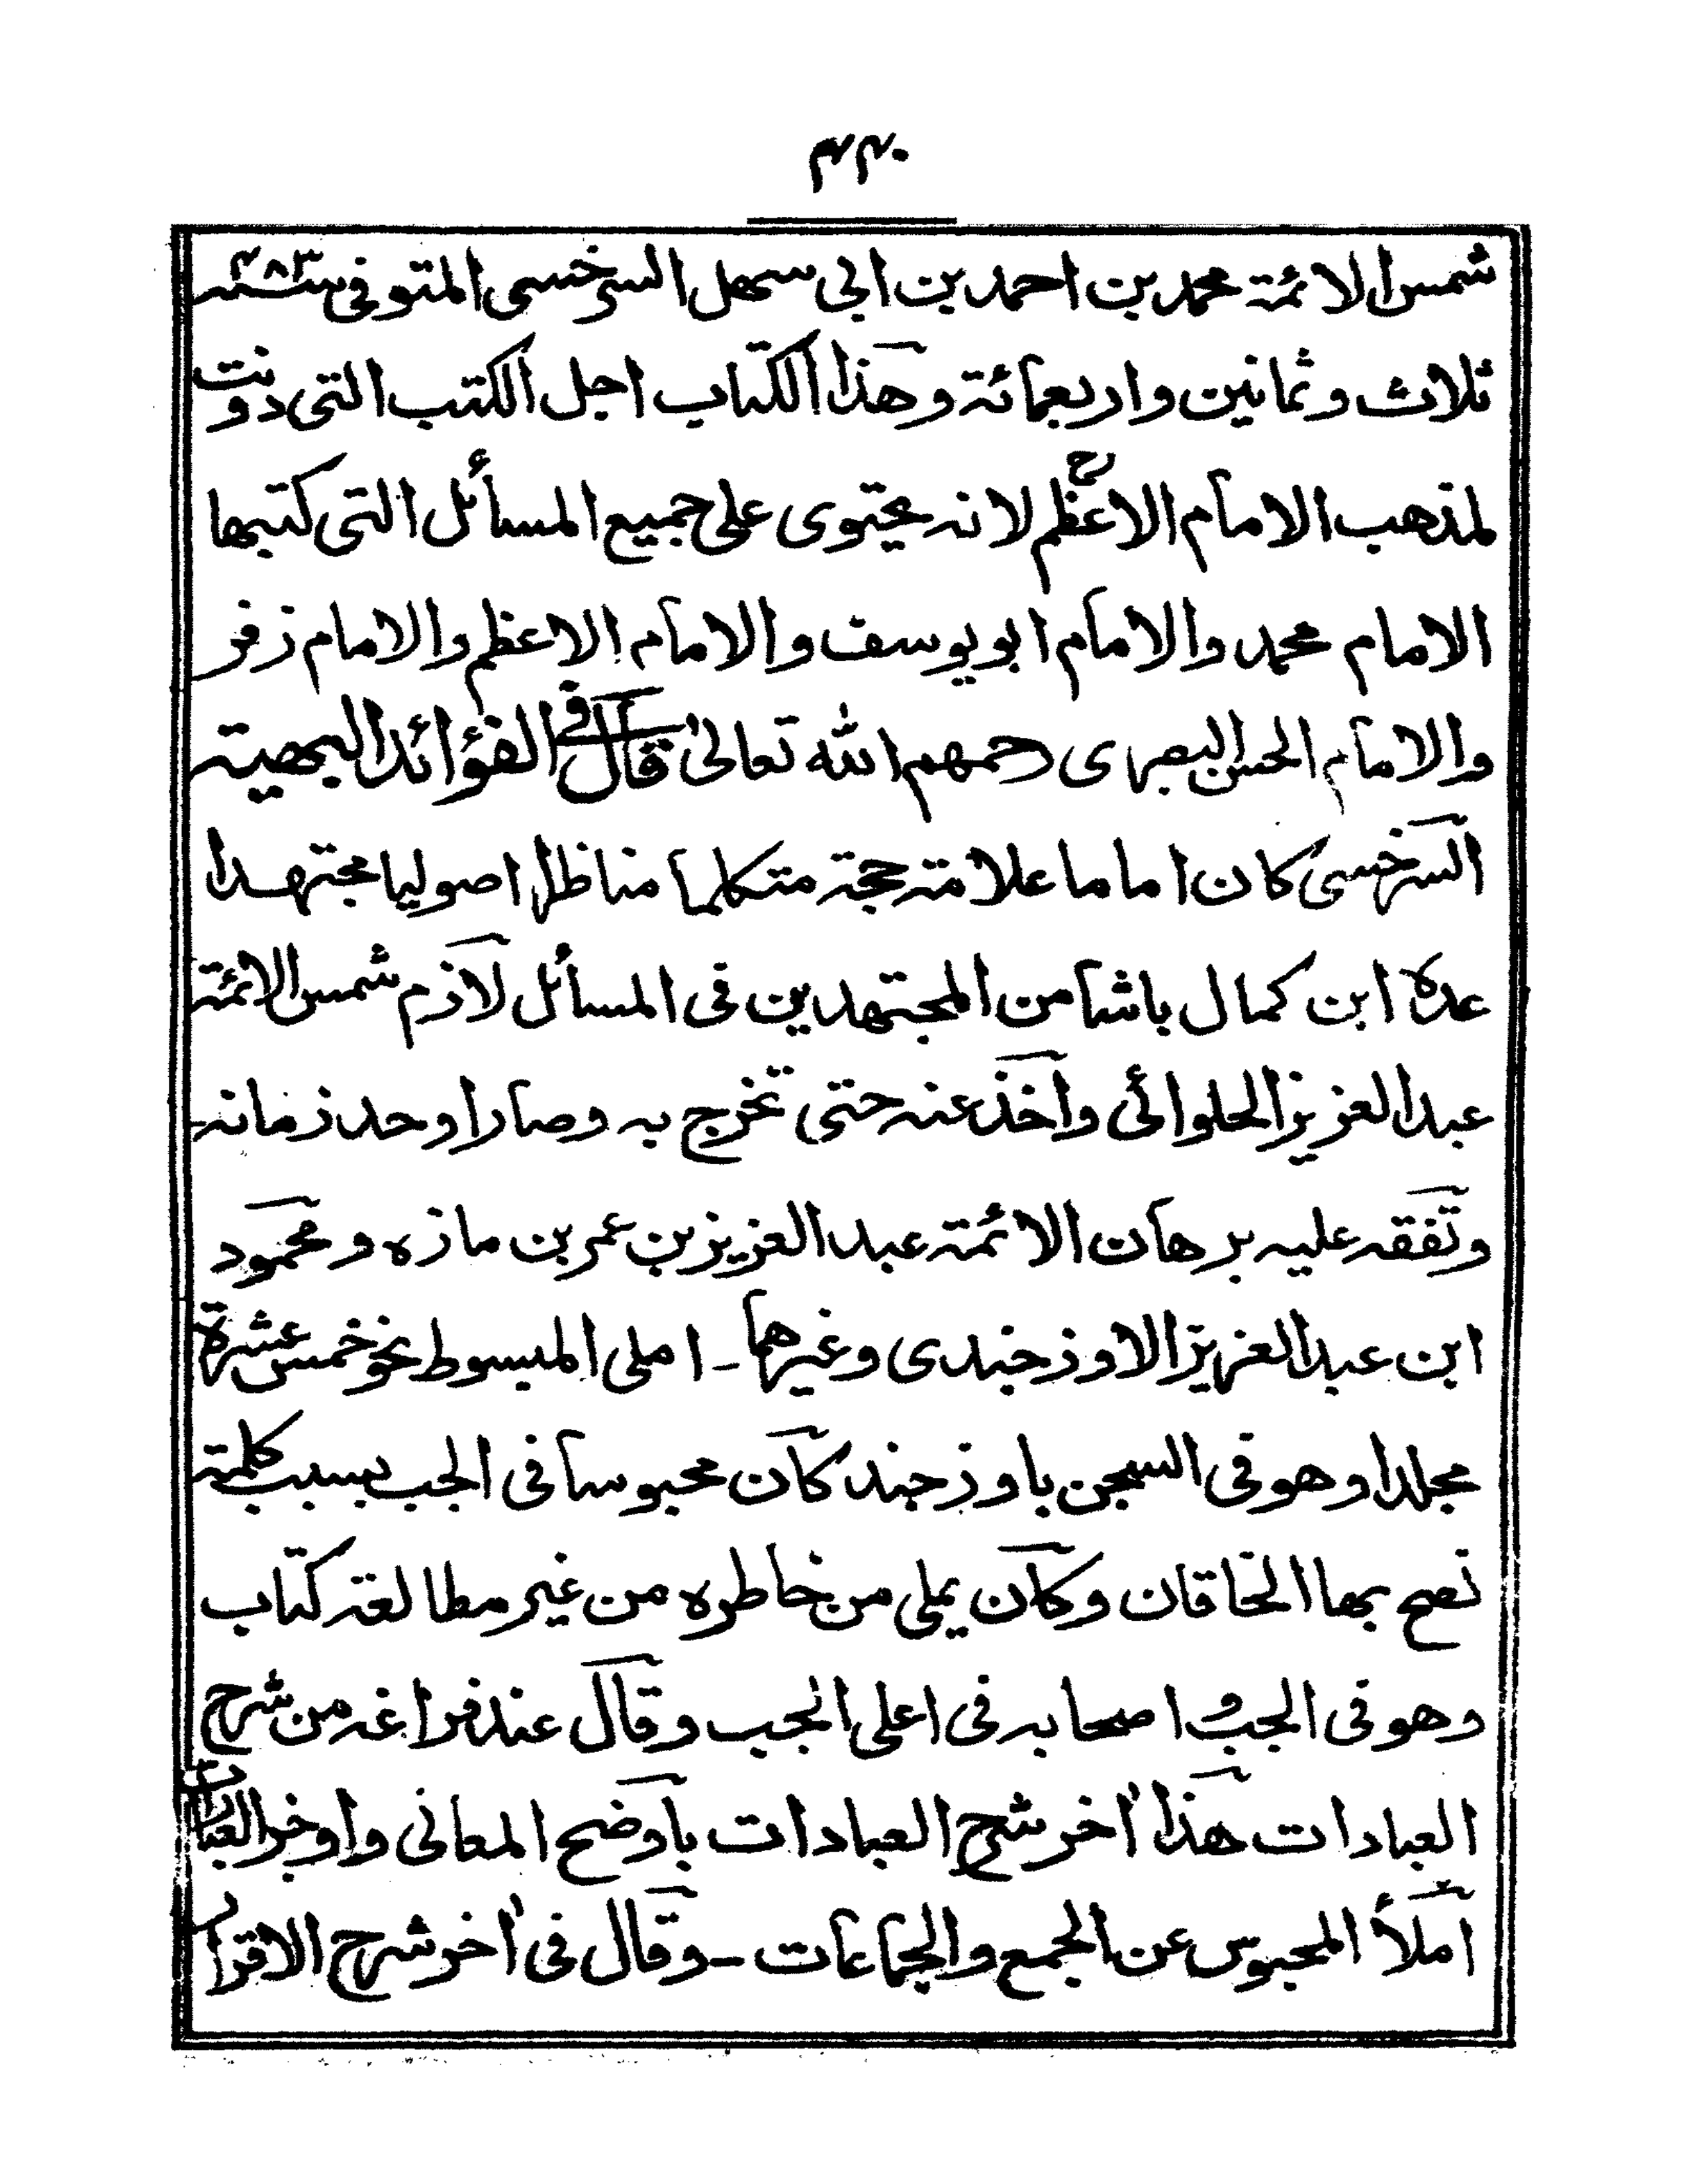 ۴۴۰
شمس الائمة محمد بن احمد بن ابى سهل السرخسى المتوفى سنة ۴۸۳
ثلاث وثمانين واربعمائة وهذا الكتاب اجل الكتب التى دونت
لمذهب الامام الاعظم رح لانه يحتوى على جميع المسائل التى كتبها
الامام محمد والامام ابو يوسف والامام الاعظم والامام زفر
والامام الحسن البصرى رحمهم الله تعالىٰ قال فى الفؤائد البهية
السرخسى كان اماما علامة حجة متكلما مناظرا اصوليا مجتهدا
عده ابن كمال باشا من المجتهدين فى المسائل لازم شمس الائمة
عبد العزيز الحلوائى واخذ عنه حتى تخرج به وصار اوحد زمانه
وتفقه عليه برهان الائمة عبد العزيز بن عمر بن مازه ومحمود
ابن عبد العزيز الاوزجندى وغيرهما - املى المبسوط نحو خمس عشرة
مجلدا وهو فى السجن باوزجند كان محبوسا فى الجب بسبب كلمة
نصح بها الخاقان وكان يملى من خاطره من غير مطالعة كتاب
وهو فى الجب واصحابه فى اعلى الجب وقال عند فراغه من شرح
العبادات هذا اٰخر شرح العبادات باوضح المعانى واوخر العبارات
املأ المحبوس عن الجمع والجماعات - وقال فى اٰخر شرح الاقرار